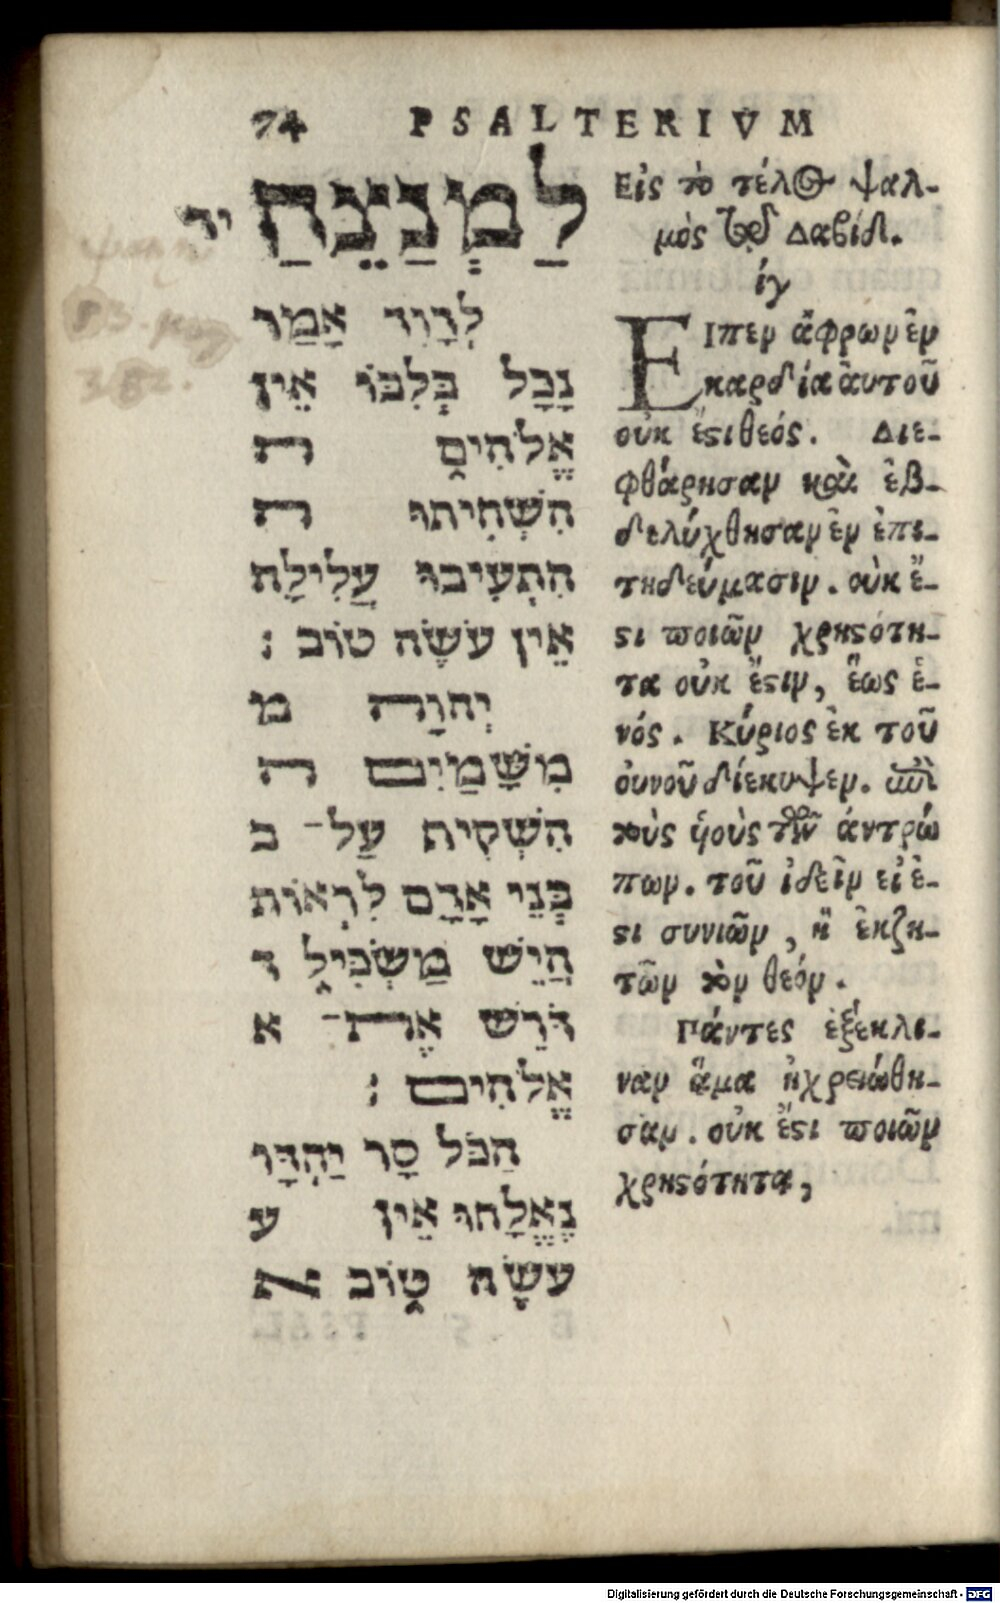 74 PSALTERIVM
יד
לַמְנַצֵּחַ
לְדָוִד אָמַר
נָבָל בְּלִבּוֹ אֵין
אֱלֹהִים ה
הִשְׁחִיתוּ ה
הִתְעִיבוּ עֲלִילָה
אֵין עֹשֵׂה טוֹב :
יְהוָה מ
מִשָּׁמַיִם ה
הִשְׁקִיף עַל־ ב
בְּנֵי אָדָם לִרְאוֹת
הֲיֵשׁ מַשְׂכִּיל ד
דֹּרֵשׁ אֶת־ א
אֱלֹהִים :
הַכֹּל סָר יַחְדָּו
נֶאֱלָחוּ אֵין ע
עֹשֵׂה טוֹב א
Εἰς τὸ τέλος ψαλ-
μὸς τῷ Δαβίδ.
ιγ
ΕΙπεν ἄφρων ἐν
καρδία ἀυτοῦ
οὐκ ἔστι θεός. Διε-
φθάρησαν καὶ ἐβ-
δελύχθησαν ἐν ἐπι-
τηδεύμασιν. οὐκ ἔ-
στι ποιῶν χρηστότη-
τα οὐκ ἔστιν, ἕως ἑ-
νός. Κύριος ἐκ τοῦ
ὀυνοῦ διέκυψεν. ἐπὶ
τοὺς ὑοὺς τῶν ἀντρώ
πων. τοῦ ἰδεῖν εἰ ἔ-
στι συνιῶν, ἢ ἐκζη-
τῶν τὸν θεόν.
Πάντες ἐξέκλι-
ναν ἅμα ἠχρειώθη-
σαν. οὐκ ἔστι ποιῶν
χρηστότητα,
Digitalisierung gefördert durch die Deutsche Forschungsgemeinschaft - DFG